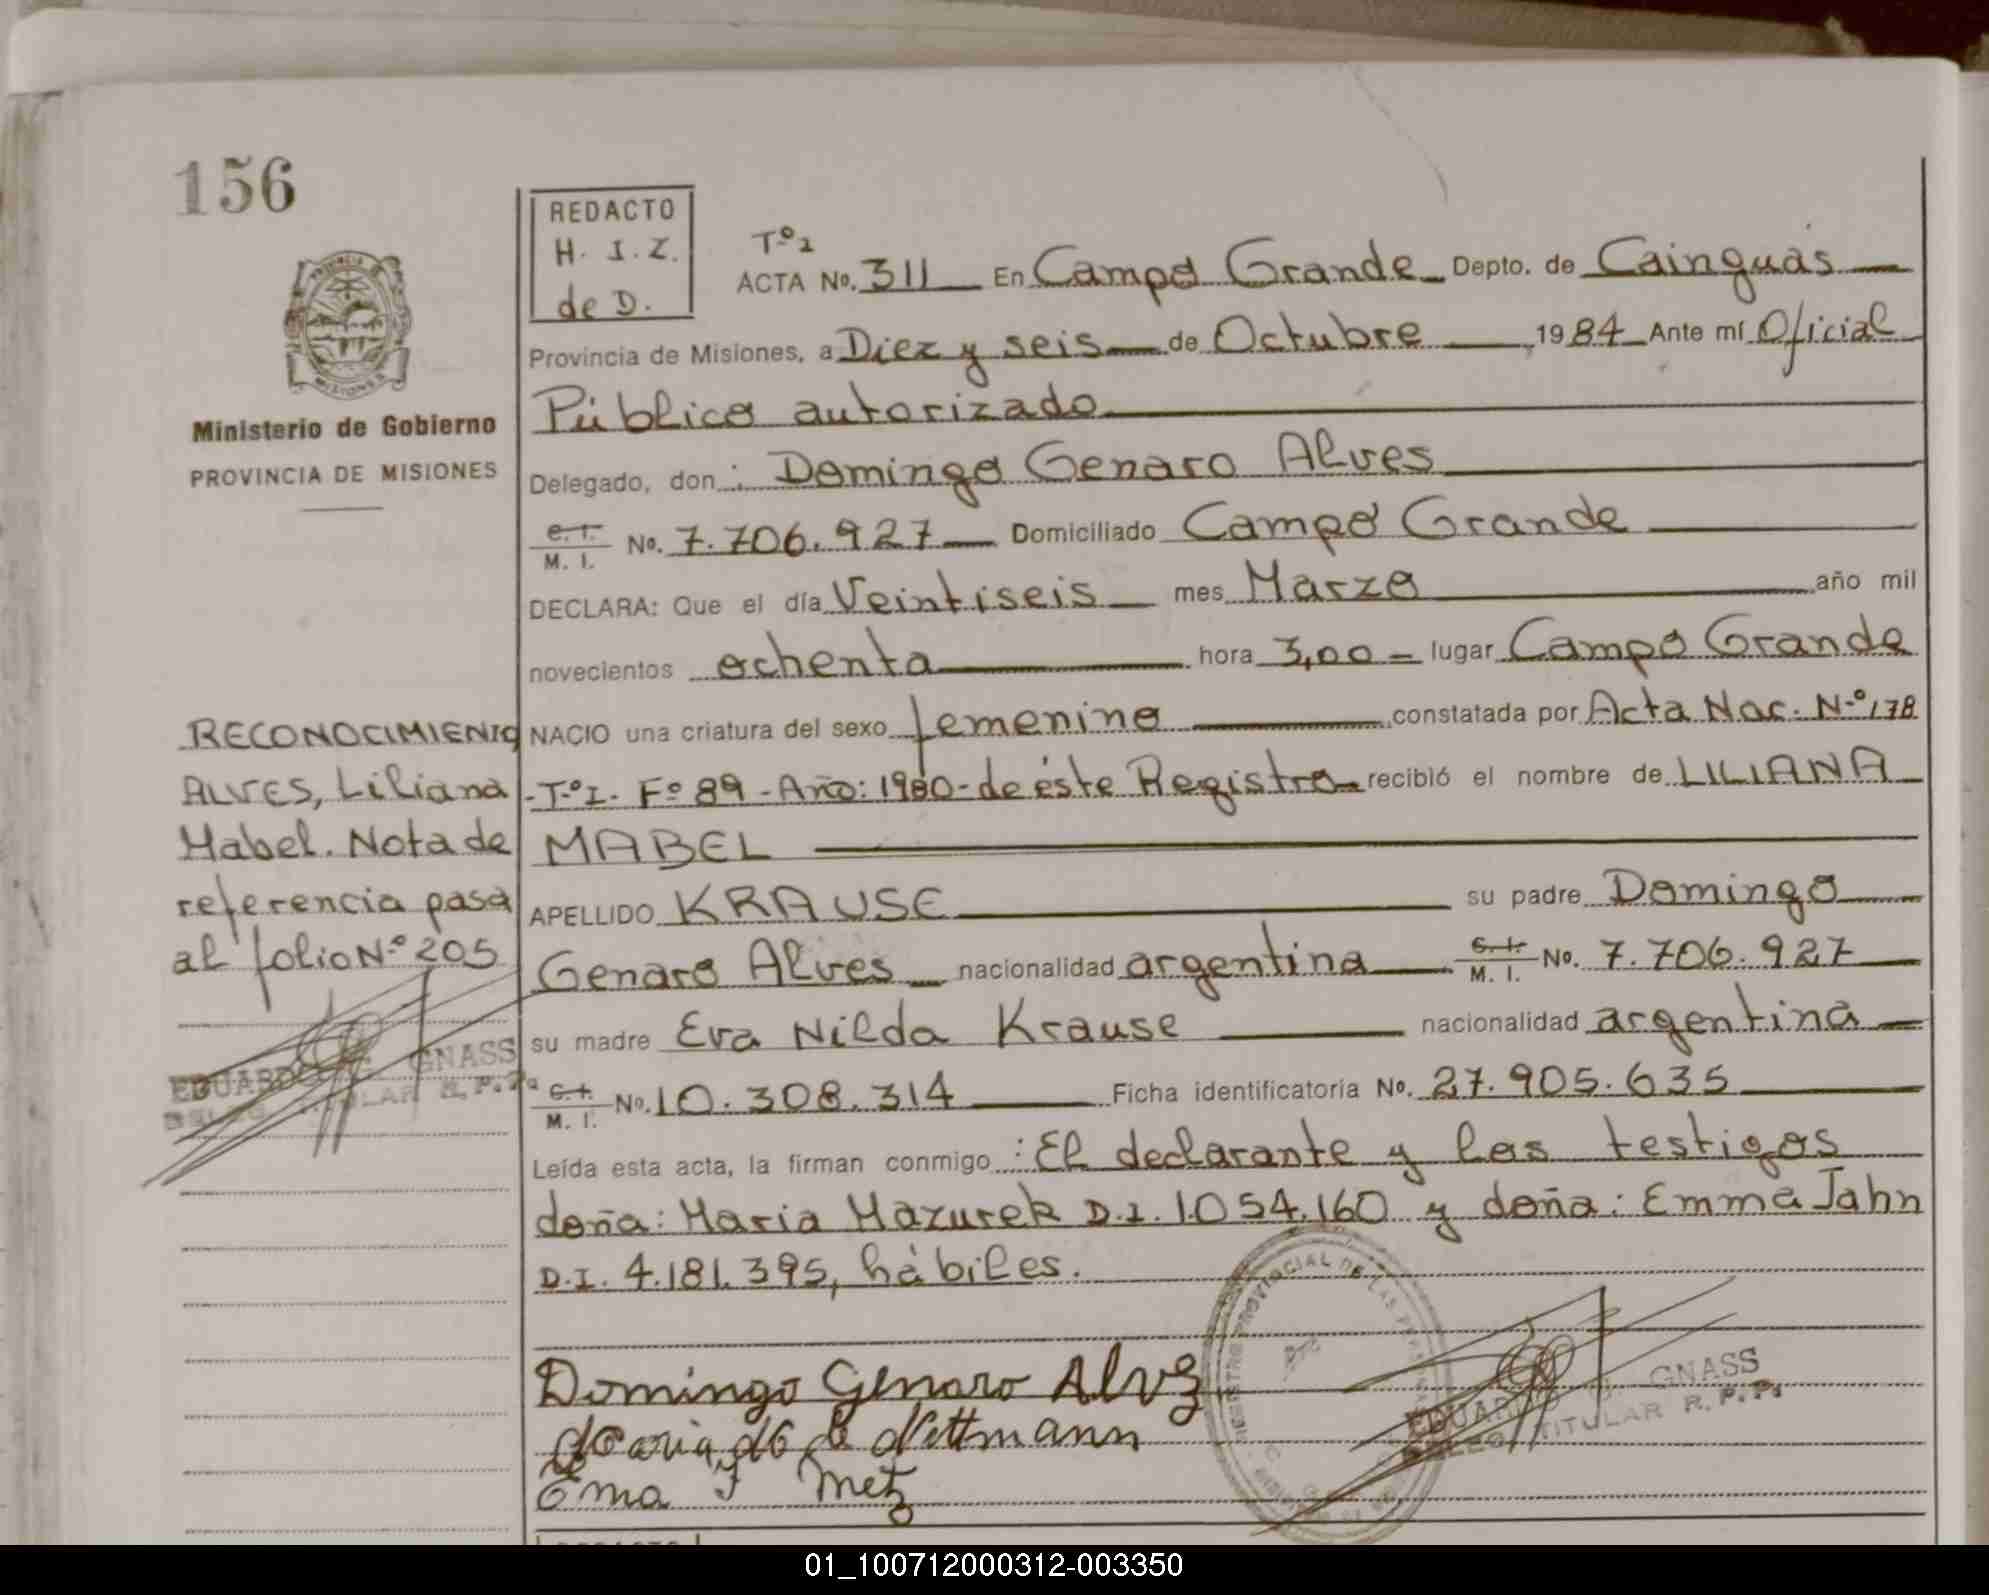 156
REDACTO
H. I. Z.
de D.
Tº1
ACTA No. 311 En Campo Grande Depto. de Cainguás
Provincia de Misiones, a Diez y seis de Octubre, 1984 Ante mí Oficial
Público autorizado
Delegado, don: Domingo Genaro Alves
C.I.
M. I. No. 7.706.927 Domiciliado Campo Grande
DECLARA: Que el día Veintiseis mes Marzo año mil
novecientos ochenta hora 3,00 lugar Campo Grande
NACIO una criatura del sexo femenino constatada por Acta Nac. Nº 178
-TºI- Fº 89 - Año: 1980 - de éste Registro recibió el nombre de LILIANA
MABEL
APELLIDO KRAUSE su padre Domingo
Genaro Alves nacionalidad argentina C.I. M. I. No. 7.706.927
su madre Eva Nilda Krause nacionalidad argentina
C.I. M. I. No. 10.308.314 Ficha identificatoria No. 27.905.635
Leída esta acta, la firman conmigo: El declarante y los testigos
doña: Maria Mazurek D.I. 1.054.160 y doña: Emma Jahn
D.I. 4.181.395, hábiles.
Domingo Genaro Alvz
Maria de Dittmann
Ema J Metz
EDUARDO GNASS
DELEG. TITULAR R.P.P.
REGISTRO PROVINCIAL DE LAS PERSONAS
Ministerio de Gobierno
PROVINCIA DE MISIONES
RECONOCIMIENTO
ALVES, Liliana
Mabel. Nota de
referencia pasa
al folio Nº 205
EDUARDO GNASS
DELEG. TITULAR R.P.P.
01_100712000312-003350